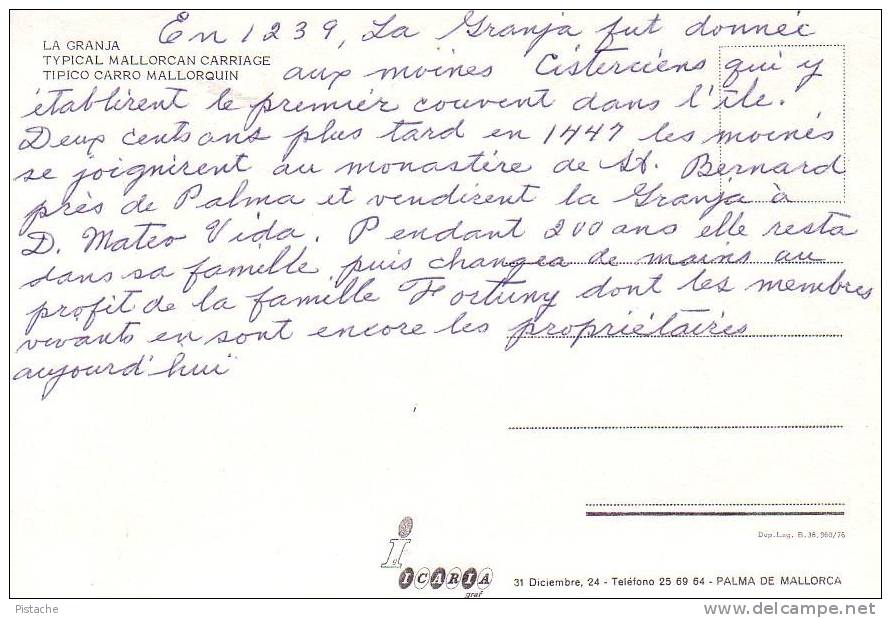 LA GRANJA
TYPICAL MALLORCAN CARRIAGE
TIPICO CARRO MALLORQUIN
En 1239, La Granja fut donnée
aux moines Cisterciens qui y
établirent le premier couvent dans l'île.
Deux cents ans plus tard en 1447 les moines
se joignirent au monastère de St. Bernard
près de Palma et vendirent la Granja à
D. Mateo Vida. Pendant 200 ans elle resta
dans sa famille, puis changea de mains au
profit de la famille Fortuny dont les membres
vivants en sont encore les propriétaires
aujourd'hui
Dep. Leg. B. 38.980/76
ICARIA
graf
31 Diciembre, 24 - Teléfono 25 69 64 - PALMA DE MALLORCA
Pistache
delcampe.net